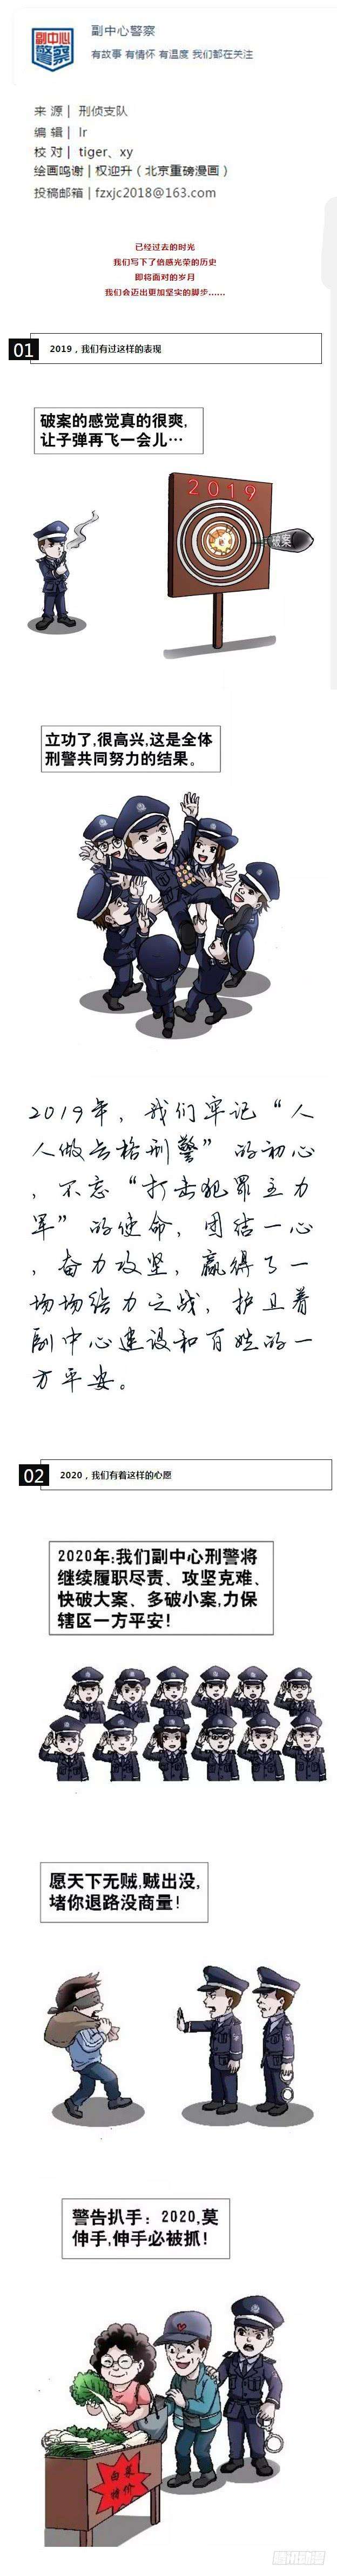 副中心警察
副中心
警察
有故事 有情怀 有温度 我们都在关注
来 源 | 刑侦支队
编 辑 | lr
校 对 | tiger、xy
绘画鸣谢 | 权迎升（北京重磅漫画）
投稿邮箱 | fzxjc2018@163.com
已经过去的时光
我们写下了倍感光荣的历史
即将面对的岁月
我们会迈出更加坚实的脚步......
01 2019，我们有过这样的表现
破案的感觉真的很爽,
让子弹再飞一会儿…
2019
破案
立功了,很高兴,这是全体
刑警共同努力的结果。
2019年，我们牢记“人
人做合格刑警”的初心
，不忘“打击犯罪主力
军”的使命，团结一心
，奋力攻坚，赢得了一
场场给力之战，护卫着
副中心建设和百姓的一
方平安。
02 2020，我们有着这样的心愿
2020年:我们副中心刑警将
继续履职尽责、攻坚克难、
快破大案、多破小案,力保
辖区一方平安!
愿天下无贼,贼出没,
堵你退路没商量!
警告扒手：2020,莫
伸手,伸手必被抓!
白菜
特价
腾讯动漫